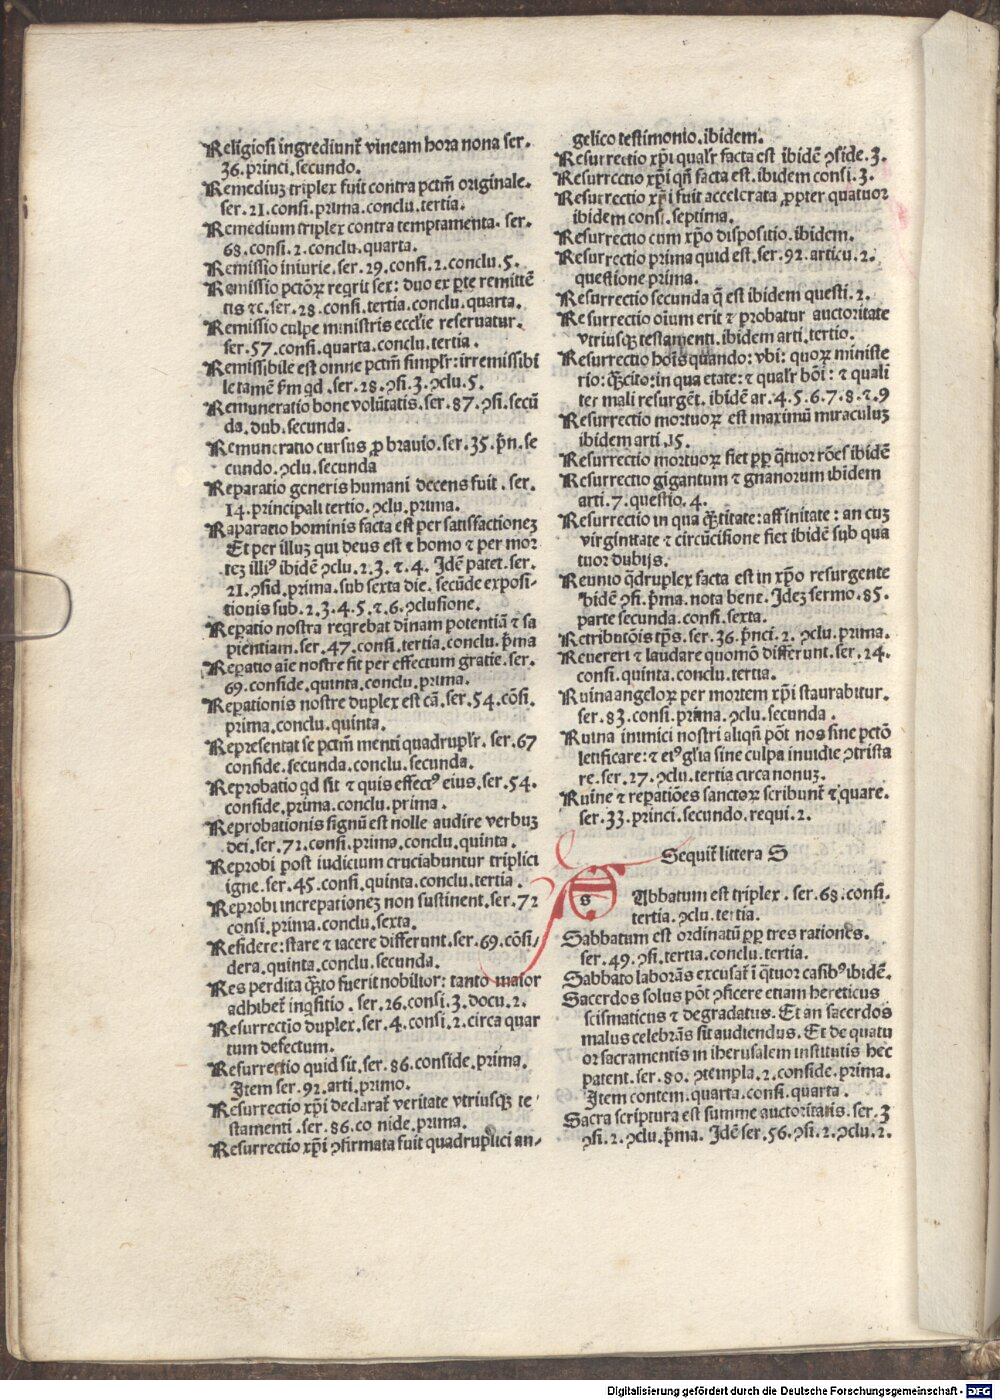 Religiosi ingrediunt̃ vineam hora nona ser.
36.princi.secundo.
Remediuꝫ triplex fuit contra pctm̃ originale.
ser.21.consi.prima.conclu.tertia.
Remedium triplex contra temptamenta.ser.
68.consi.2.conclu.quarta.
Remissio iniurie.ser.29.consi.2.conclu.5.
Remissio pctõꝝ reqrit sex: duo ex ꝑte remittẽ
tis ⁊c.ser.28.consi.tertia.conclu.quarta.
Remissio culpe ministris ecclie reseruatur.
ser.57.consi.quarta.conclu.tertia.
Remissibile est omne pctm̃ simplr̃: irremissibi
le tamẽ sm̃ qd .ser.28.ꝯsi.3.ꝯclu.5.
Remuneratio bone volũtatis.ser.87.ꝯsi.secũ
da.dub.secunda.
Remuneratio cursus ꝓ brauio.ser.35.p̃n.se
cundo.ꝯclu.secunda
Reparatio generis humani decens fuit .ser.
14.principali tertio.ꝯclu.prima.
Raparatio hominis facta est per satisfactioneꝫ
Et per illuꝫ qui deus est ⁊ homo ⁊ per mor
teꝫ illiꝰ ibidẽ ꝯclu.2.3.⁊.4. Idẽ patet.ser.
21.ꝯsid.prima.sub sexta die.secũde exposi-
tionis sub.2.3.4.5.⁊.6.ꝯclusione.
Reꝑatio nostra reqrebat diuinam potentiã ⁊ sa
pientiam.ser.47.consi.tertia.conclu.p̃ma
Reꝑatio aĩe nostre fit per effectum gratie.ser.
69.conside.quinta.conclu.prima.
Reꝑationis nostre duplex est cã.ser.54.cõsi.
prima.conclu.quinta.
Representat se pctm̃ menti quadruplr̃.ser.67
conside.secunda.conclu.secunda.
Reprobatio qd sit ⁊ quis effectꝰ eius.ser.54.
conside.prima.conclu.prima.
Reprobationis signũ est nolle audire verbuꝫ
dei.ser.72.consi.prima.conclu.quinta.
Reprobi post iudicium cruciabuntur triplici
igne.ser.45.consi.quinta.conclu.tertia.
Reprobi increpationeꝫ non sustinent.ser.72
consi.prima.conclu.sexta.
Residere: stare ⁊ iacere differunt.ser.69.cõsi/
dera.quinta.conclu.secunda.
Res perdita q̃to fuerit nobilior: tanto maior
adhibet̃ inqsitio .ser.26.consi.3.docu.2.
Resurrectio duplex.ser.4.consi.2.circa quar
tum defectum.
Resurrectio quid sit.ser.86.conside.prima.
Item ser.92.arti.primo.
Resurrectio xp̃i declarat̃ veritate vtriusqꝫ te
stamenti .ser.86.co nide.prima.
Resurrectio xp̃i ꝯfirmata fuit quadruplici an-
gelico testimonio.ibidem.
Resurrectio xp̃i qualr̃ facta est ibidẽ ꝯside.3.
Resurrectio xp̃i qñ facta est.ibidem consi.3.
Resurrectio xp̃i fuit accelerata ꝓpter quatuor
ibidem consi.septima.
Resurrectio cum xp̃o dispositio.ibidem.
Resurrectio prima quid est.ser.92.articu.2.
questione prima.
Resurrectio secunda q̃ est ibidem questi.2.
Resurrectio oĩum erit ⁊ probatur auctoritate
vtriusqꝫ testamenti.ibidem arti.tertio.
Resurrectio hoĩs quando: vbi: quoꝝ ministe
rio: q̃cito: in qua etate: ⁊ qualr̃ bõi: ⁊ quali
ter mali resurgẽt.ibidẽ ar.4.5.6.7.8.⁊.9
Resurrectio mortuoꝝ est maximũ miraculuꝫ
ibidem arti.15.
Resurrectio mortuoꝝ fiet pp̃ q̃tuor rões ibidẽ
Resurrectio gigantum ⁊ gnanorum ibidem
arti.7.questio.4.
Resurrectio in qua q̃titate: affinitate: an cuꝫ
virginitate ⁊ circũcisione fiet ibidẽ sub qua
tuor dubijs.
Reunio q̃druplex facta est in xp̃o resurgente
ibidẽ ꝯsi.p̃ma.nota bene. Ideꝫ sermo.85.
parte secunda.consi.sexta.
Retributõis tp̃s.ser.36.p̃nci.2.ꝯclu.prima.
Revereri ⁊ laudare quomõ differunt.ser.24.
consi.quinta.conclu.tertia.
Ruina angeloꝝ per mortem xp̃i staurabitur.
ser.83.consi.prima.ꝯclu.secunda.
Ruina inimici nostri aliqñ põt nos sine pctõ
letificare: ⁊ eiꝰ glia sine culpa inuidie ꝯtrista
re.ser.27.ꝯclu.tertia circa nonuꝫ.
Ruine ⁊ reꝑatiões sanctoꝝ scribunt̃ ⁊ quare.
ser.33.princi.secundo.requi.2.
Sequit̃ littera S
s Abbatum est triplex.ser.68.consi.
tertia.ꝯclu.tertia.
Sabbatum est ordinatũ pp̃ tres rationes.
ser.49.ꝯsi.tertia.conclu.tertia.
Sabbato laborãs excusat̃ i q̃tuor casibꝰ ibidẽ.
Sacerdos solus põt ꝯficere etiam hereticus
scismaticus ⁊ degradatus. Et an sacerdos
malus celebrãs sit audiendus. Et de quatu
or sacramentis in iherusalem institutis hec
patent.ser.80.ꝯtempla.2.conside.prima.
Item contem.quarta.consi.quarta.
Sacra scriptura est summe auctoritatis.ser.3
ꝯsi.2.ꝯclu.p̃ma. Idẽ ser.56.ꝯsi.2.ꝯclu.2.
Digitalisierung gefördert durch die Deutsche Forschungsgemeinschaft - DFG